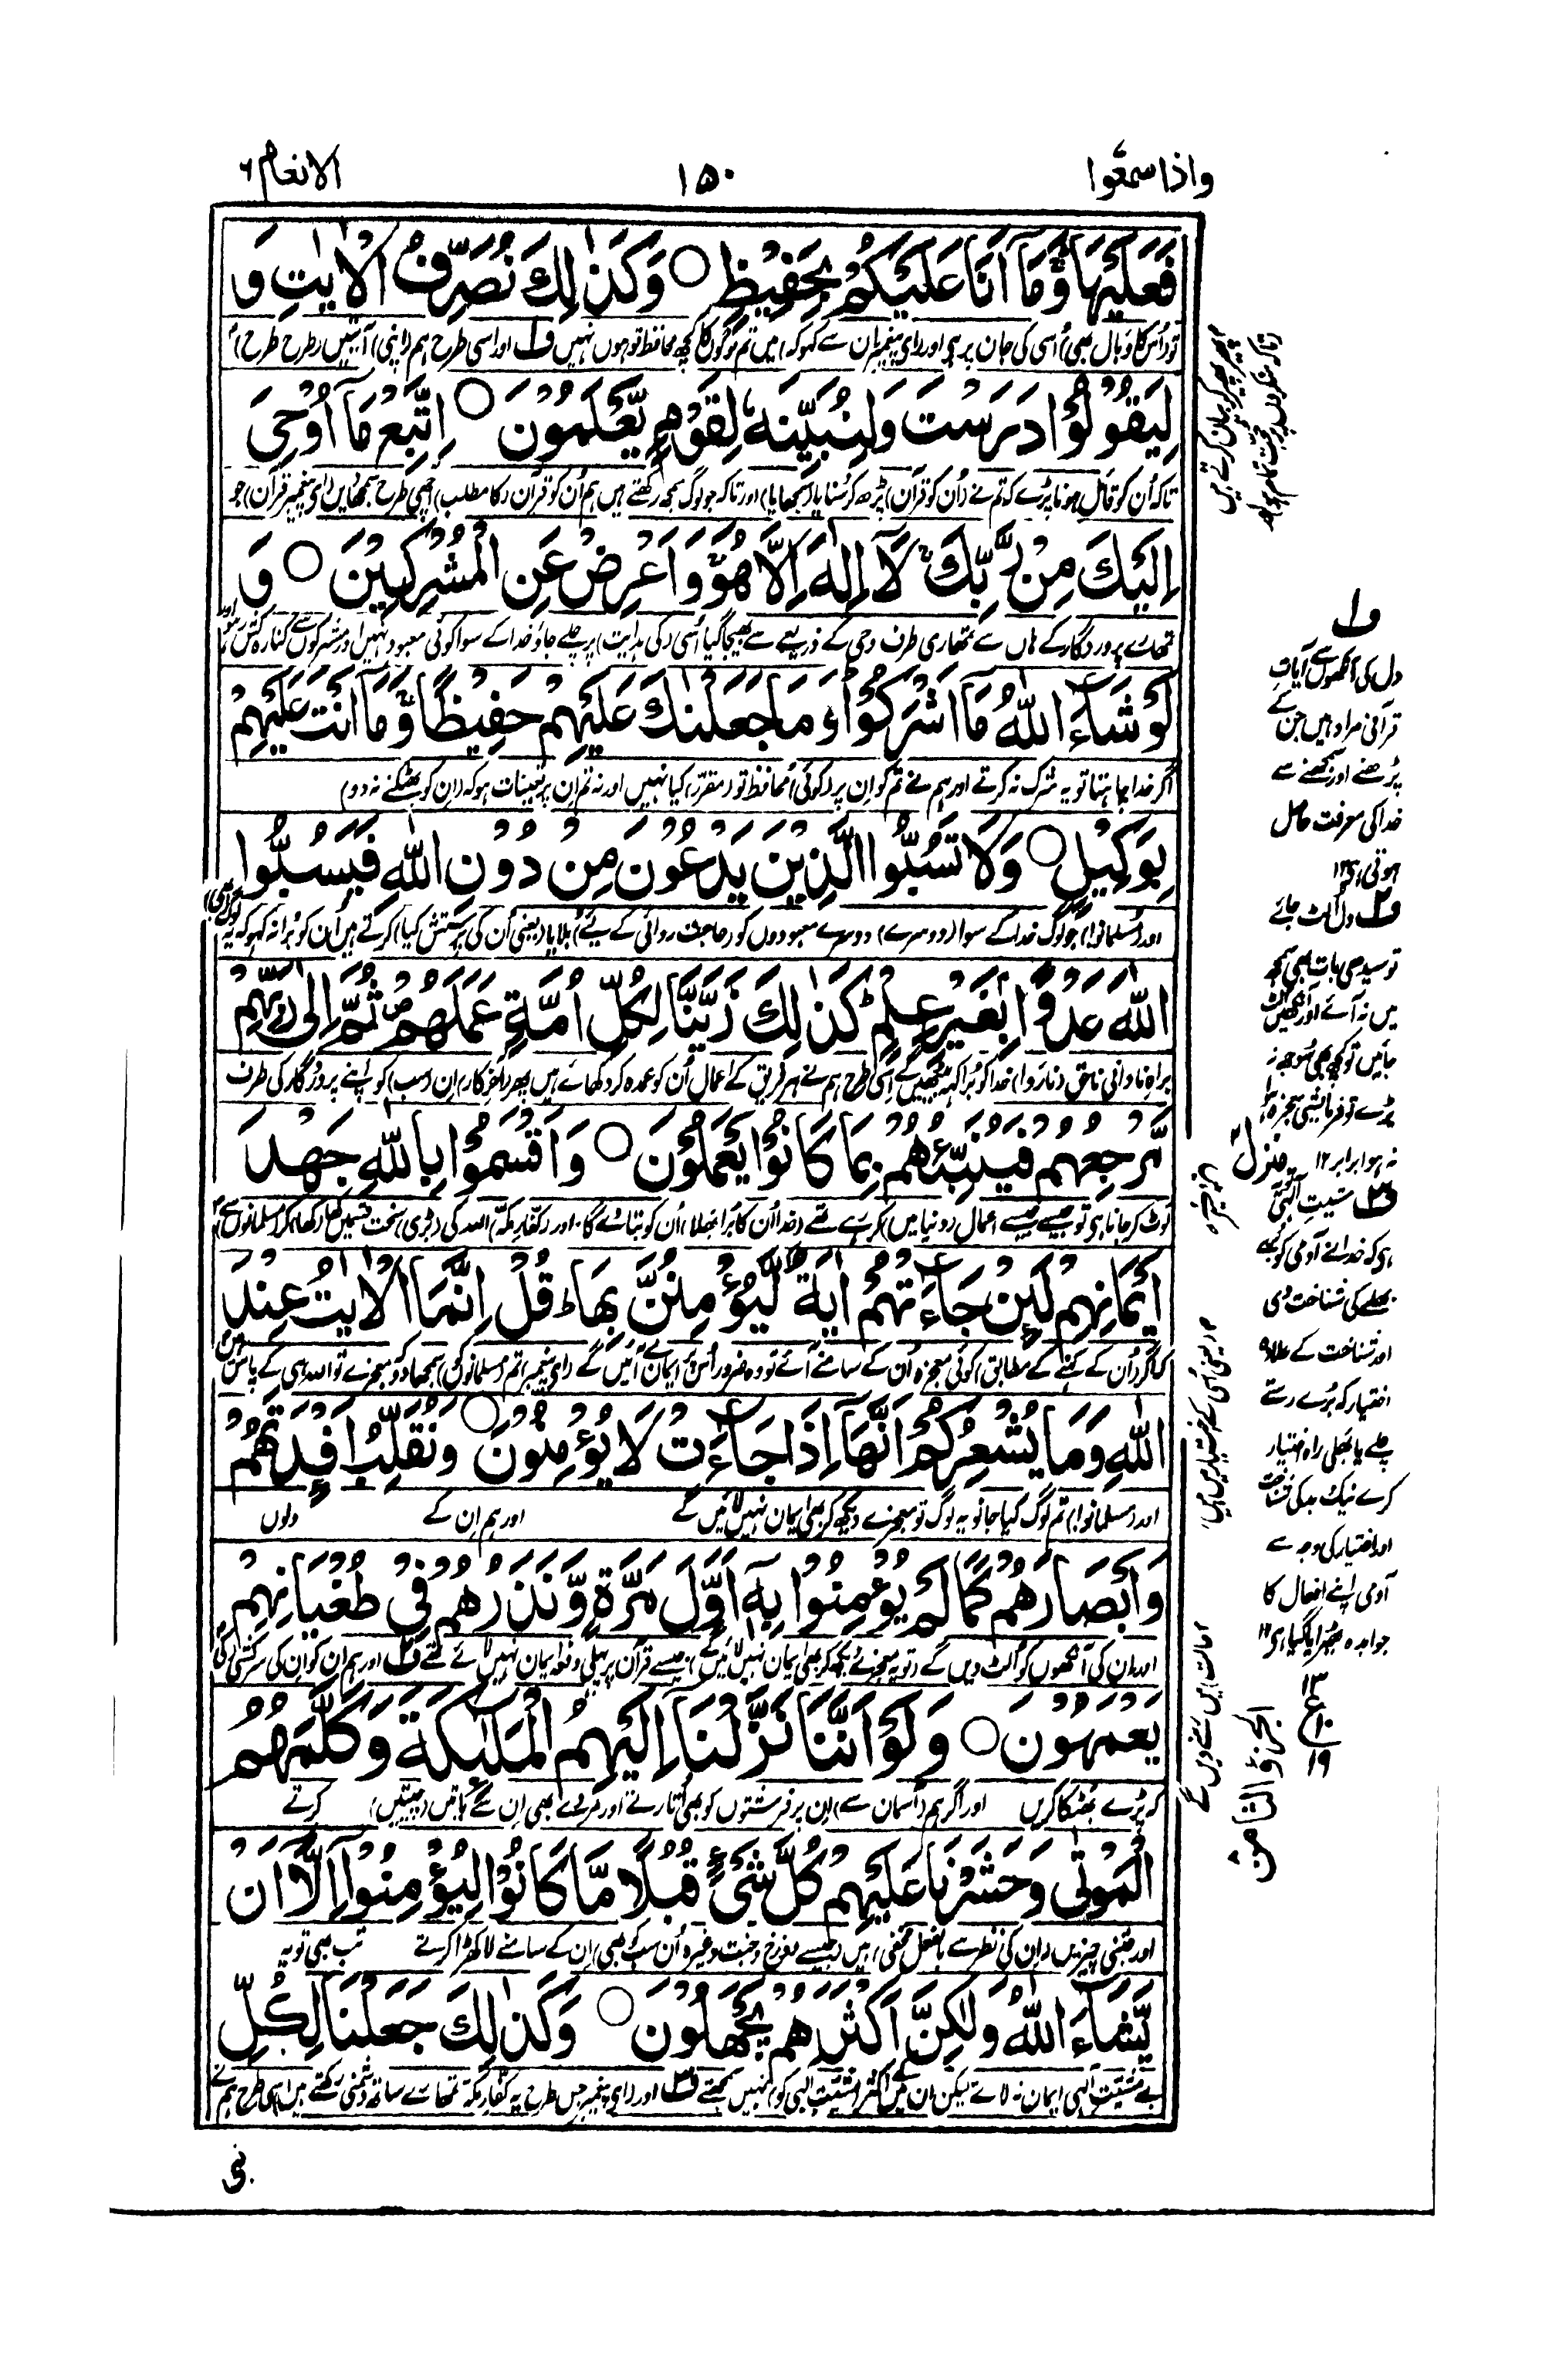 واذا سمعوا
۱۵۰
الانعام ۶
فَعَلَيْهَا ؕ وَمَاۤ اَنَا عَلَيْكُمْ بِحَفِيْظٍ ○ وَكَذٰلِكَ نُصَرِّفُ الْاٰيٰتِ وَ
تو (اُس کا وبال بھی) اسی کی جان پر ہی اور (ای پیغمبر ان سے کہو کہ) میں تم لوگوں کا کچھ محافظ تو ہوں نہیں ف۱ اور اسی طرح ہم (اپنی) آیتیں (طرح طرح)
لِيَقُوْلُوْا دَرَسْتَ وَلِنُبَيِّنَهٗ لِقَوْمٍ يَّعْلَمُوْنَ ○ اِتَّبِعْ مَاۤ اُوْحِيَ
تاکہ اُن کو قائل ہونا پڑے کہ تم نے (اُن کو قرآن) پڑھ کر سُنا یا (سمجھایا) اور تاکہ جو لوگ سمجھ رکھتے ہیں ہم اُن کو قرآن (کا مطلب) اچھی طرح سمجھا دیں (ای پیغمبر قرآن) جو
اِلَيْكَ مِنْ رَّبِّكَ ۚ لَاۤ اِلٰهَ اِلَّا هُوَ ۚ وَاَعْرِضْ عَنِ الْمُشْرِكِيْنَ ○ وَ
تمھارے پروردگار کے ہاں سے تمھاری طرف وحی کے ذریعے سے بھیجا گیا اُسی (کی ہدایت) پر چلے جاؤ خدا کے سوا کوئی معبود نہیں اور مشرکوں سے کنارہ کش رہو اور
لَوْ شَآءَ اللّٰهُ مَاۤ اَشْرَكُوْا ؕ وَمَا جَعَلْنٰكَ عَلَيْهِمْ حَفِيْظًا ۚ وَمَاۤ اَنْتَ عَلَيْهِمْ
اگر خدا چاہتا تو یہ شرک نہ کرتے اور ہم نے تم کو ان پر (کوئی) محافظ تو (مقرر) کیا نہیں اور نہ تم ان پر تعینات ہو کہ (ان کو بھٹکنے نہ دو)
بِوَكِيْلٍ ○ وَلَا تَسُبُّوا الَّذِيْنَ يَدْعُوْنَ مِنْ دُوْنِ اللّٰهِ فَيَسُبُّوا
اور (مسلمانو!) جو لوگ خدا کے سوا (دوسرے) دوسرے معبودوں کو (حاجت روائی کے لیے) بلایا (یعنی اُن کی پرستش کیا) کرتے ہیں اُن کو بُرا نہ کہو کہ یہ لوگ (بھی)
اللّٰهَ عَدْوًۢا بِغَيْرِ عِلْمٍ ؕ كَذٰلِكَ زَيَّنَّا لِكُلِّ اُمَّةٍ عَمَلَهُمْ ۪ ثُمَّ اِلٰى رَبِّهِمْ
براہ نادانی ناحق (ناروا) خدا کو بُرا کہہ بیٹھیں گے اسی طرح ہم نے ہر فریق کے اعمال اُن کو عمدہ کر دکھائے ہیں پھر (آخرکار) ان (سب) کو اپنے پروردگار کی طرف
مَّرْجِعُهُمْ فَيُنَبِّئُهُمْ بِمَا كَانُوْا يَعْمَلُوْنَ ○ وَاَقْسَمُوْا بِاللّٰهِ جَهْدَ
لوٹ کر جانا ہی تو جیسے جیسے اعمال (دنیا میں) کر رہے تھے (خدا اُن کا بُرا بھلا) اُن کو بتا دے گا۔ اور (کفار مکہ) اللہ کی (بڑی) سخت قسمیں کھا (کھا) کر مسلمانوں سے
اَيْمَانِهِمْ لَئِنْ جَآءَتْهُمْ اٰيَةٌ لَّيُؤْمِنُنَّ بِهَا ؕ قُلْ اِنَّمَا الْاٰيٰتُ عِنْدَ
کہ اگر (اُن کے کہنے کے مطابق) کوئی معجزہ اُن کے سامنے آئے تو وہ ضرور اُس پر ایمان لے آئیں گے (ای پیغمبر) تم (مسلمانوں کو) سمجھا دو کہ معجزے تو اللہ ہی کے پاس ہیں
اللّٰهِ وَمَا يُشْعِرُكُمْ اَنَّهَاۤ اِذَا جَآءَتْ لَا يُؤْمِنُوْنَ ○ وَنُقَلِّبُ اَفْـِٕدَتَهُمْ
اور (مسلمانو!) تم لوگ کیا جانو یہ لوگ تو معجزے دیکھ کر بھی ایمان نہیں لائیں گے اور ہم ان کے دلوں
وَاَبْصَارَهُمْ كَمَا لَمْ يُؤْمِنُوْا بِهٖۤ اَوَّلَ مَرَّةٍ وَّنَذَرُهُمْ فِيْ طُغْيَانِهِمْ
اور ان کی آنکھوں کو اُلٹ دیں گے (تو یہ معجزے دیکھ کر بھی ایمان نہیں لائیں گے) جیسے قرآن پر پہلی دفعہ ایمان نہیں لائے تھے ف۲ اور ہم ان کو ان کی سرکشی کی
يَعْمَهُوْنَ ○ وَلَوْ اَنَّنَا نَزَّلْنَاۤ اِلَيْهِمُ الْمَلٰٓئِكَةَ وَكَلَّمَهُمُ
کہ پڑے بھٹکا کریں اور اگر ہم (آسمان سے) ان پر فرشتوں کو بھی اُتارتے اور مردے بھی ان سے باتیں (چیتیں) کرتے
الْمَوْتٰى وَحَشَرْنَا عَلَيْهِمْ كُلَّ شَيْءٍ قُبُلًا مَّا كَانُوْا لِيُؤْمِنُوْۤا اِلَّاۤ اَنْ
اور جتنی چیزیں (ان کی نظر سے بالفعل مخفی) ہیں (جیسے دوزخ و جنت وغیرہ) اُن سب کو بھی ان کے سامنے لا کھڑا کرتے تب بھی تو یہ
يَّشَآءَ اللّٰهُ وَلٰكِنَّ اَكْثَرَهُمْ يَجْهَلُوْنَ ○ وَكَذٰلِكَ جَعَلْنَا لِكُلِّ
بے مشیت الٰہی ایمان نہ لاتے لیکن ان میں کے اکثر (مشیت الٰہی کو) نہیں سمجھتے ف۳ اور (ای پیغمبر جس طرح یہ کفار مکہ تمھارے ساتھ دشمنی رکھتے ہیں) اسی طرح ہم نے
ف۱
دل کی آنکھوں سے آیاتِ
قرآنی مراد ہیں جن کے
پڑھنے اور سمجھنے سے
خدا کی معرفت حاصل
ہوتی ہی ۱۲
ف۲ دل اُلٹ جائے
تو سیدھی بات بھی سمجھ
میں نہ آئے اور آنکھیں اُلٹ
جائیں تو کچھ بھی سُوجھ نہ
پڑے تو فرمائشی معجزہ ہوا
نہ ہوا برابر ۱۲
منزل ۲
ف۳ مشیتِ الٰہی
ہی کہ خدا نے آدمی کو بُرے
بھلے کی شناخت دی
اور شناخت کے علاوہ
اختیار کہ بُرے رستے
چلے یا بھلی راہ اختیار
کرے نیک و بد کی شناخت
اور اختیار کی وجہ سے
آدمی اپنے افعال کا
جوابدہ ٹھہرایا گیا ہی ۱۲
۱۳
ع
۱۰
۱۹
الجزؤ الثامن